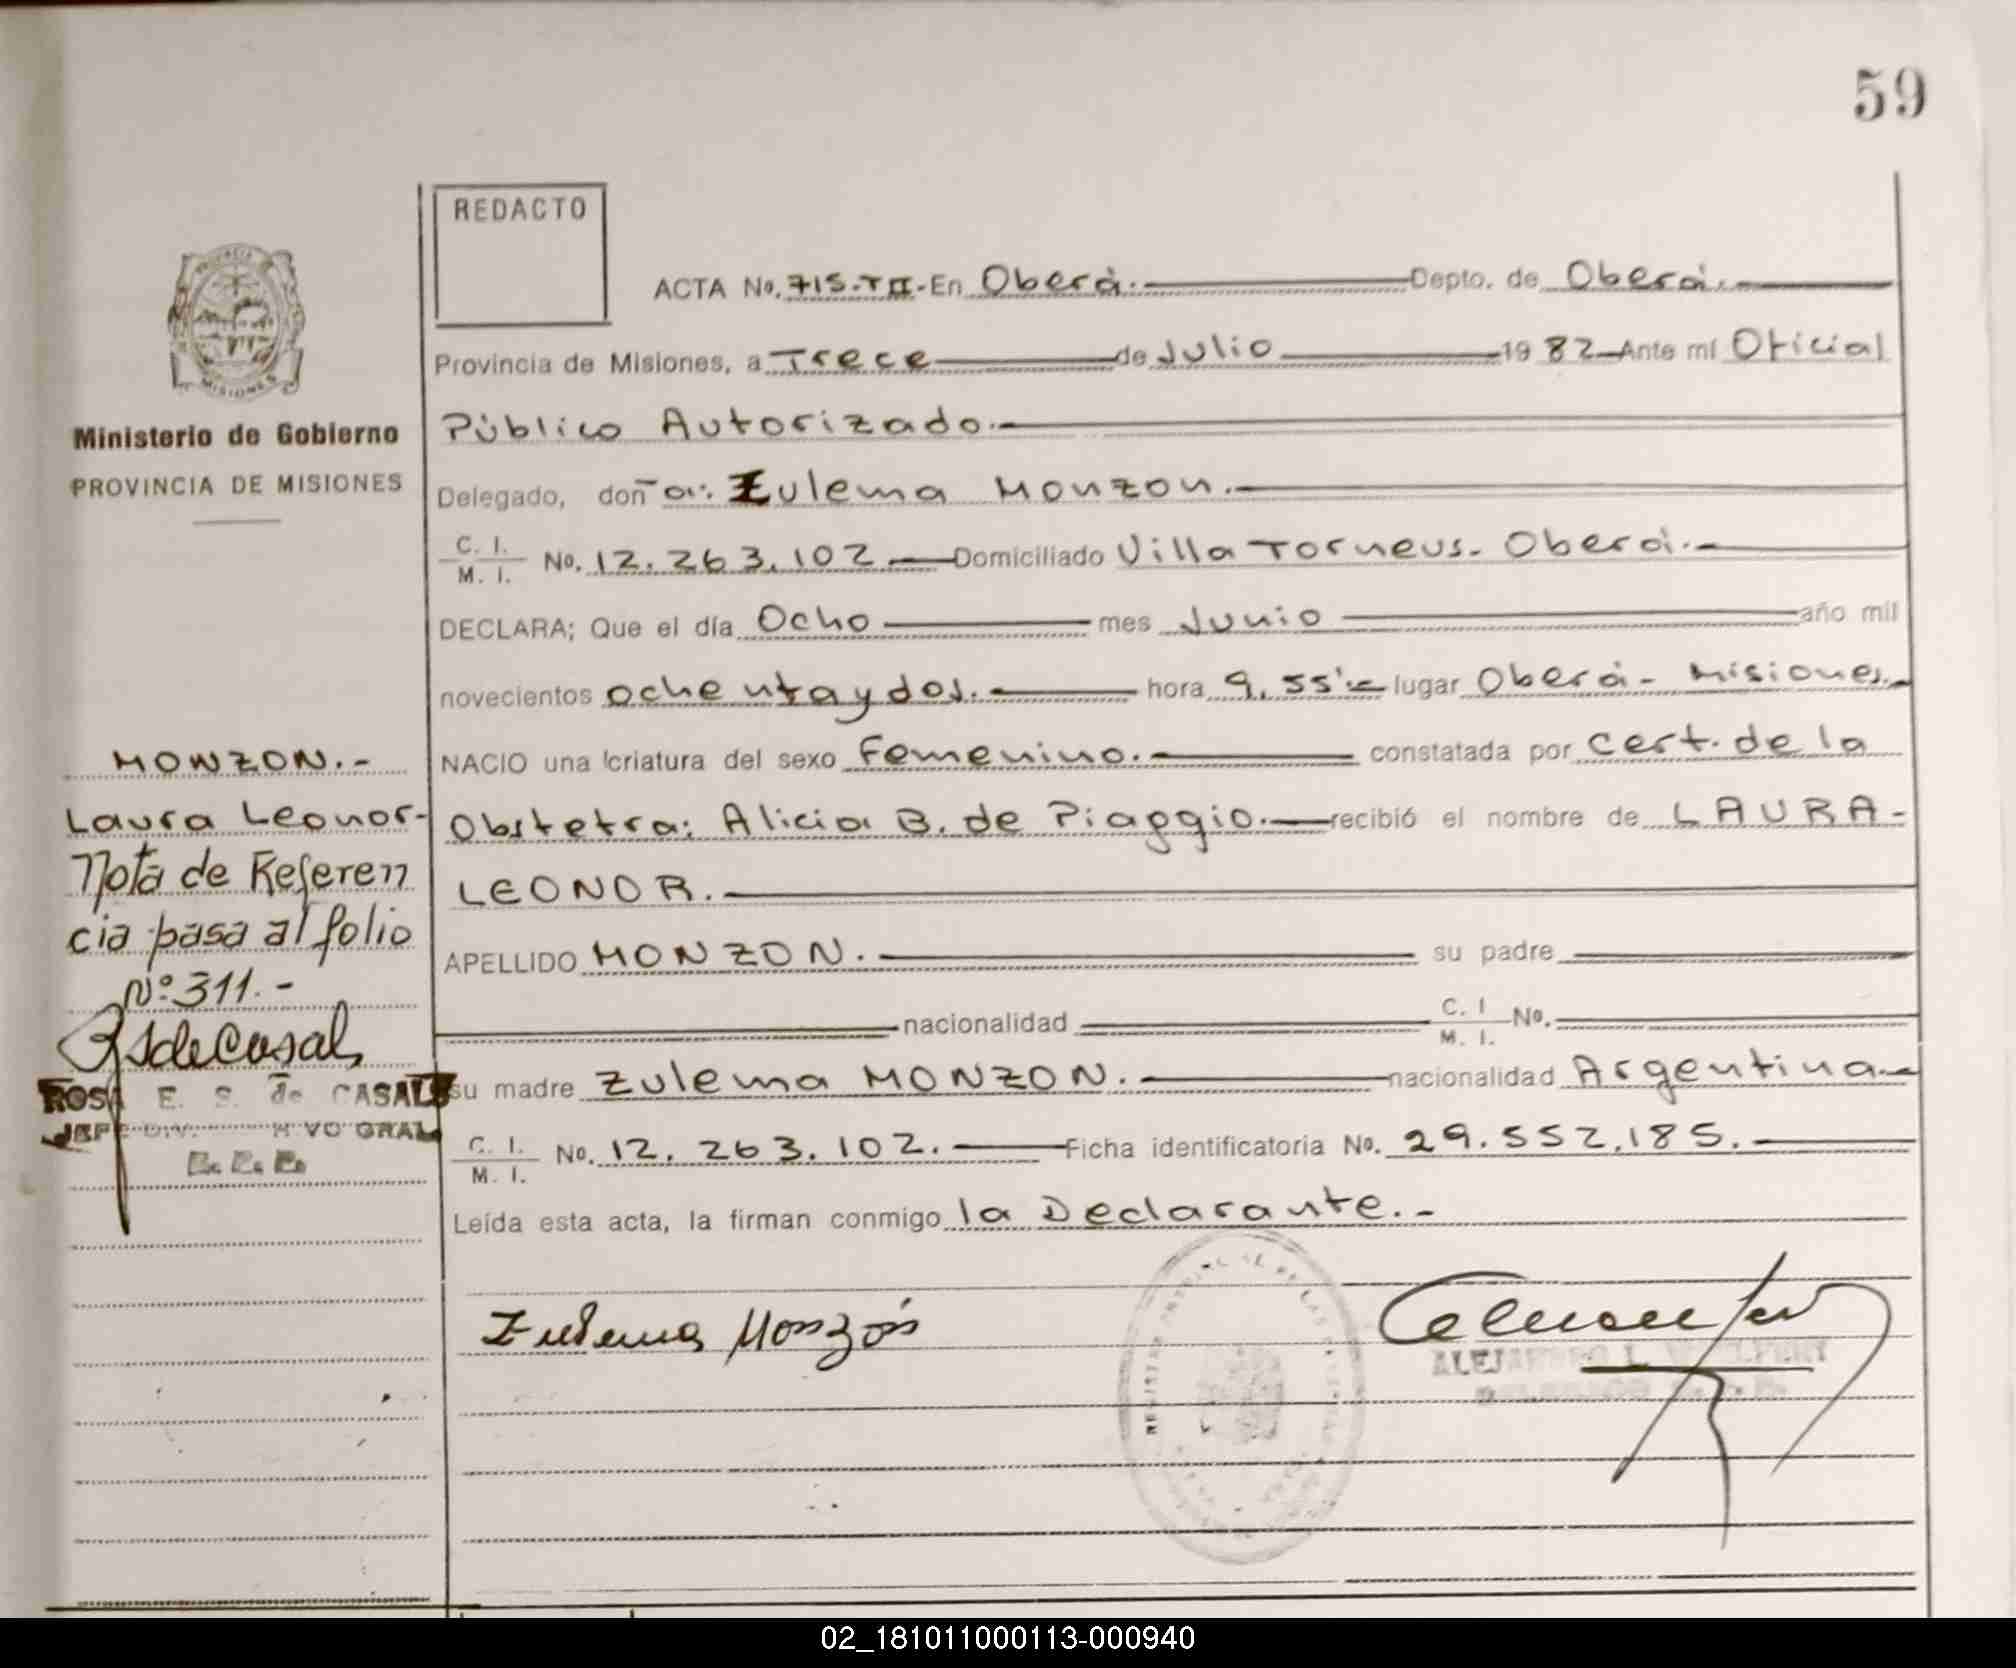 59
REDACTO
PROVINCIA
MISIONES
Ministerio de Gobierno
PROVINCIA DE MISIONES
ACTA No. 715-TII.-En Oberá. Depto. de Oberá.
Provincia de Misiones, a Trece de Julio 1982 Ante mí Oficial
Público Autorizado.
Delegado, doña: Zulema Monzon.
C. I.
M. I. No. 12.263.102. Domiciliado Villa Torneus. Oberá.
DECLARA; Que el día Ocho mes Junio año mil
novecientos ochenta y dos. hora 9.55' lugar Oberá - Misiones.
NACIO una criatura del sexo Femenino. constatada por Cert. de la
Obstetra: Alicia B. de Piaggio. recibió el nombre de LAURA-
LEONOR.
APELLIDO MONZON. su padre
nacionalidad C. I
M. I. No.
su madre Zulema MONZON. nacionalidad Argentina
C. I.
M. I. No. 12.263.102. Ficha identificatoria No. 29.552.185.
Leída esta acta, la firman conmigo la Declarante.-
MONZON.-
Laura Leonor-
Nota de Referen
cia pasa al folio
Nº 311.-
RSdeCasal
ROSA E. S. de CASALS
JEFE DIV. GRAL
Zulema Monzón
ALEJANDRO L.
02_181011000113-000940